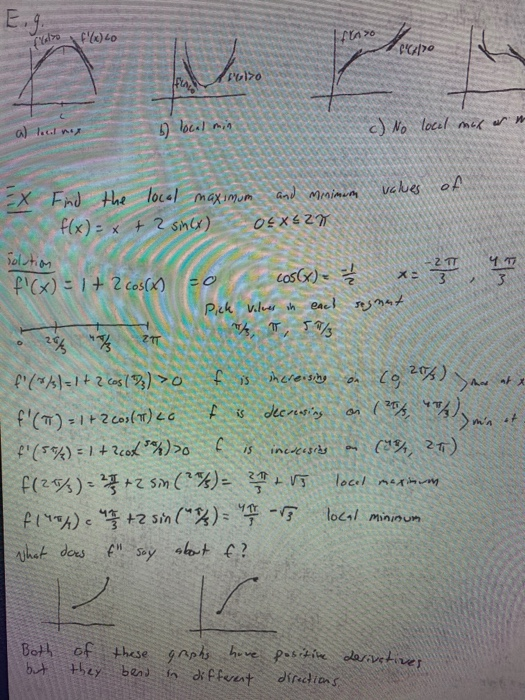 E.g.
f'(x)>0 f'(x)<0
f'(x)<0 f'(x)>0
f'(x)>0 f'(x)>0
c
a) local max b) local min c) No local max or m
Ex Find the local maximum and minimum values of
f(x) = x + 2 sin(x) 0≤x≤2π
Solution
f'(x) = 1 + 2 cos(x) = 0 cos(x) = -1/2 x = -2π/3, 4π/3
Pick values in each segment
π/3, π, 5π/3
0 2π/3 4π/3 2π
f'(π/3) = 1 + 2 cos(π/3) > 0 f is increasing on (0, 2π/3) > max at x
f'(π) = 1 + 2 cos(π) < 0 f is decreasing on (2π/3, 4π/3) > min at
f'(5π/3) = 1 + 2 cos(5π/3) > 0 f is increasing on (4π/3, 2π)
f(2π/3) = 2π/3 + 2 sin(2π/3) = 2π/3 + √3 local maximum
f(4π/3) = 4π/3 + 2 sin(4π/3) = 4π/3 - √3 local minimum
What does f" say about f?
Both of these graphs have positive derivatives
but they bend in different directions